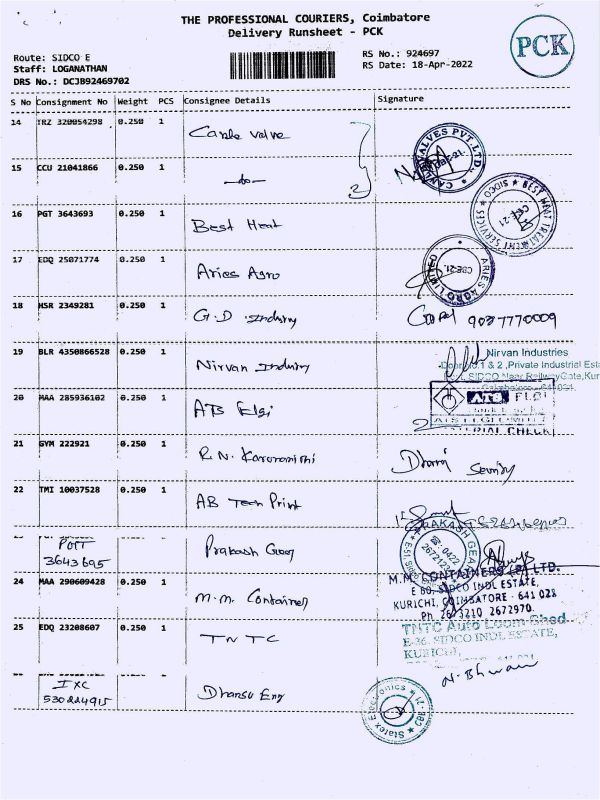 THE PROFESSIONAL COURIERS, Coimbatore
Delivery Runsheet - PCK
PCK
Route: SIDCO E
Staff: LOGANATHAN
DRS No.: DCJB92469702
RS No.: 924697
RS Date: 18-Apr-2022
S No Consignment No Weight PCS Consignee Details Signature
14 TRZ 320054298 0.250 1
VALVES PVT.LTD.
15 CCU 21041866 0.250 1 -do- 2
16 PGT 3643693 0.250 1 Best Heat
BEST HEAT TREATMENT SERVICES SIDCO CBE-21
17 EDQ 25071774 0.250 1 Aries Agro
ARIES AGRO LIMITED CBE-21.
18 MSR 2349281 0.250 1 G.D Industry
9037770009
19 BLR 4350866528 0.250 1 Nirvan Industry
Nirvan Industries
Door No.1 & 2 ,Private Industrial Esta
SIDCO Near RailwayGate,Kur
20 MAA 285936102 0.250 1 ATB Elgi
ATS ELGI
MATERIAL CHECK
21 GYM 222921 0.250 1 R.N.
22 TMI 10037528 0.250 1 AB Tech Print
POTT
3643695 Prakash Gear
PRAKASH GEAR
0422
24 MAA 290609428 0.250 1 M.M. Container
M.M. CONTAINERS (P) LTD.
E 60, SIDCO INDL ESTATE,
KURICHI, COIMBATORE - 641 021
Ph 2672970.
25 EDQ 23208607 0.250 1 TNTC
TNTC Auto Loom Shed
E-36, SIDCO INDL ESTATE,
KURICHI,
IXC
530224915 Dhansu Eng
Starex Electronics CBE-21